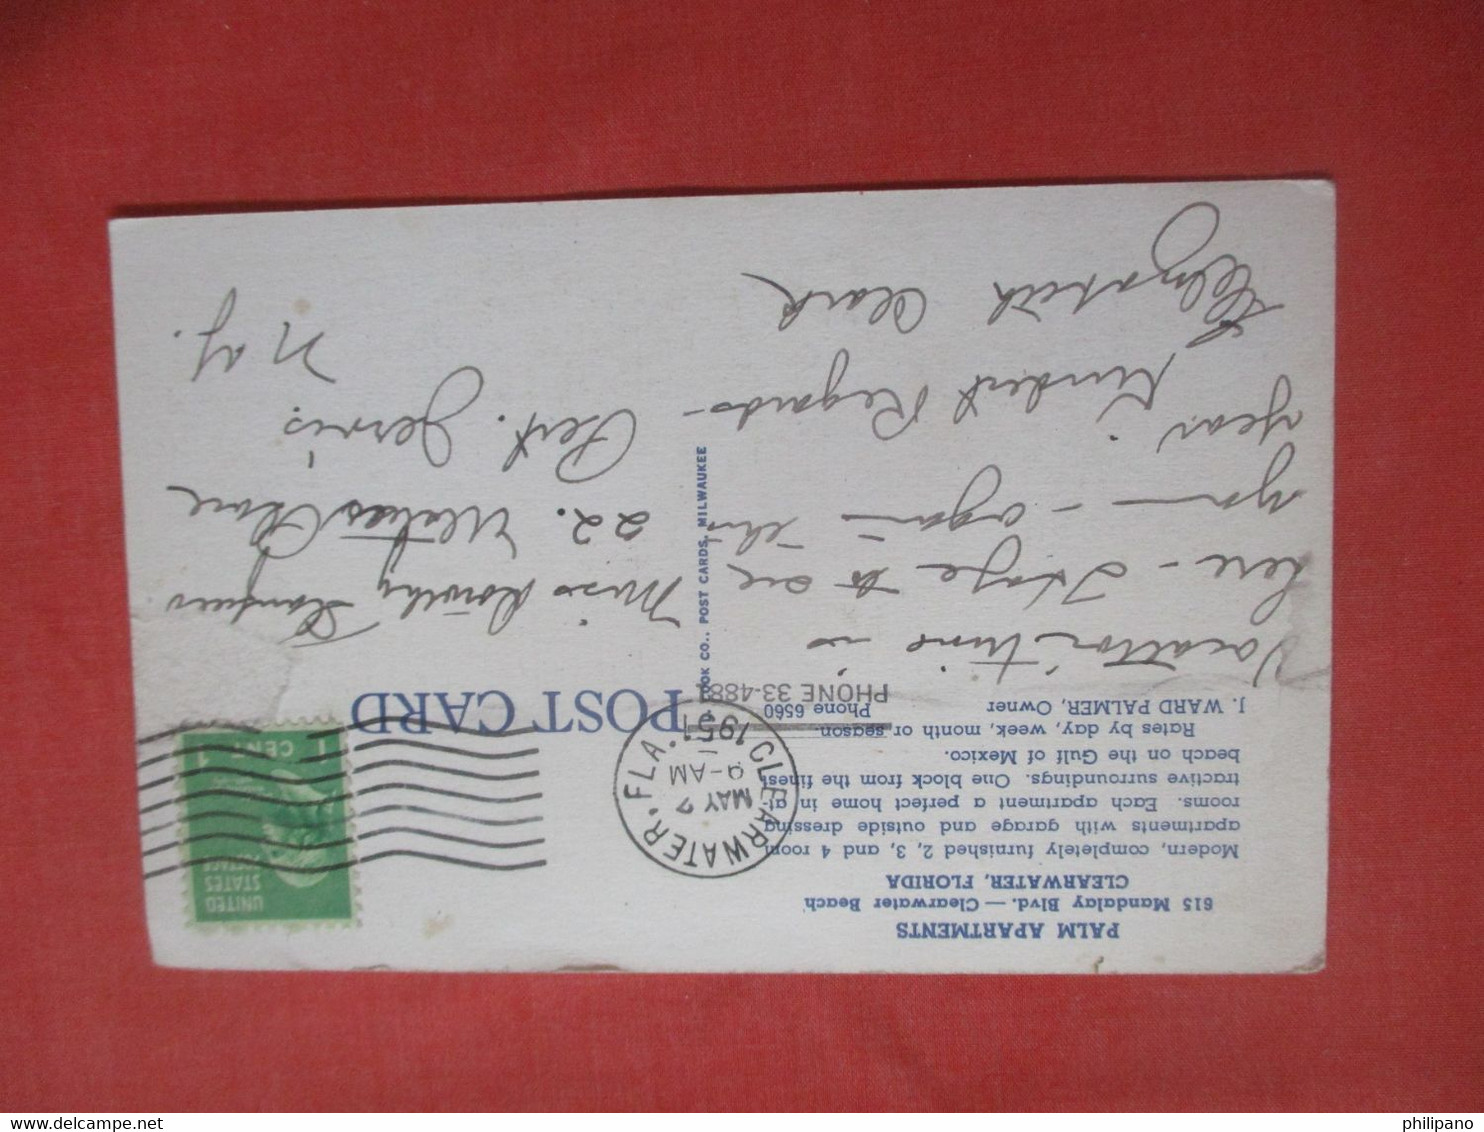 PALM APARTMENTS
615 Mandalay Blvd. — Clearwater Beach
CLEARWATER, FLORIDA
Modern, completely furnished 2, 3, and 4 room
apartments with garage and outside dressing
rooms. Each apartment a perfect home in at-
tractive surroundings. One block from the finest
beach on the Gulf of Mexico.
Rates by day, week, month or season.
J. WARD PALMER, Owner
Phone 6560
PHONE 33-4881
Vacation time is
here - I hope to see
you - again this
year.
Kindest Regards -
Elizabeth Clark
CLEARWATER, FLA.
MAY 7
9-AM
1951
UNITED
STATES
POSTAGE
1 CENT 1
POST CARD
Miss Dorothy
22.
Port. Jervis.
N.Y.
OOK CO., POST CARDS, MILWAUKEE
philipano